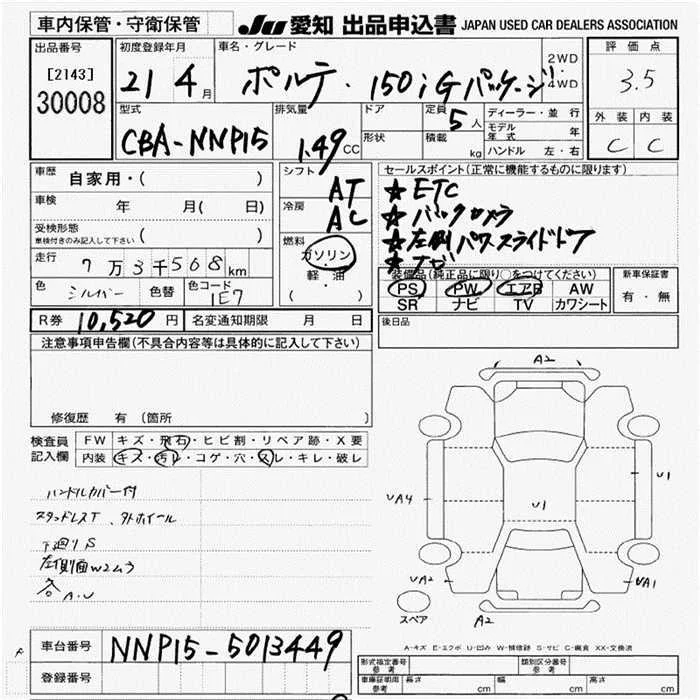 車内保管・守衛保管
JU 愛知 出品申込書 JAPAN USED CAR DEALERS ASSOCIATION
出品番号
[2143]
30008
初度登録年月
21 4月
車名・グレード
ポルテ・150i Gパッケージ
2WD
・
4WD
評価点
3.5
外装 内装
C C
型式
CBA-NNP15
排気量
1.49cc
ドア
形状
定員 5人
積載 kg
ディーラー・並行
モデル年式 年
ハンドル 左・右
車歴 自家用・( )
車検 年 月( 日)
受検形態
車検付きのみ記入して下さい ( )
走行 7万3千508km
色 シルバー 色替 色コード 1E7
シフト AT
冷房 AC
燃料
ガソリン
・
軽・油
( )
セールスポイント(正常に機能するものに限ります)
★ETC
★バックカメラ
★左側パワースライドドア
★ナビ
装備品(純正品に限り○をつけてください)
PS PW エアB AW
SR ナビ TV カワシート
新車保証書
有・無
R券 10,520円 名変通知期限 月 日
後日品
注意事項申告欄(不具合内容等は具体的に記入して下さい)
修復歴 有 (箇所 )
検査員
記入欄
FW キズ・飛石・ヒビ割・リペア跡・X要
内装 キズ・汚レ・コゲ・穴・スレ・キレ・破レ
ハンドルカバー付
スタッドレスT、外ホイール
下廻りS
左側面W2ムラ
各A.U
A2
UA4
U1
U1
UA2
UA1
A2
スペア
A-キズ E-エクボ U-凹み W-補修跡 S-サビ C-腐食 XX-交換済
車台番号 NNP15-5013449
登録番号
形式指定番号
参考
類別区分番号
参考
車庫証明用
参考
長さ cm 幅 cm 高さ cm